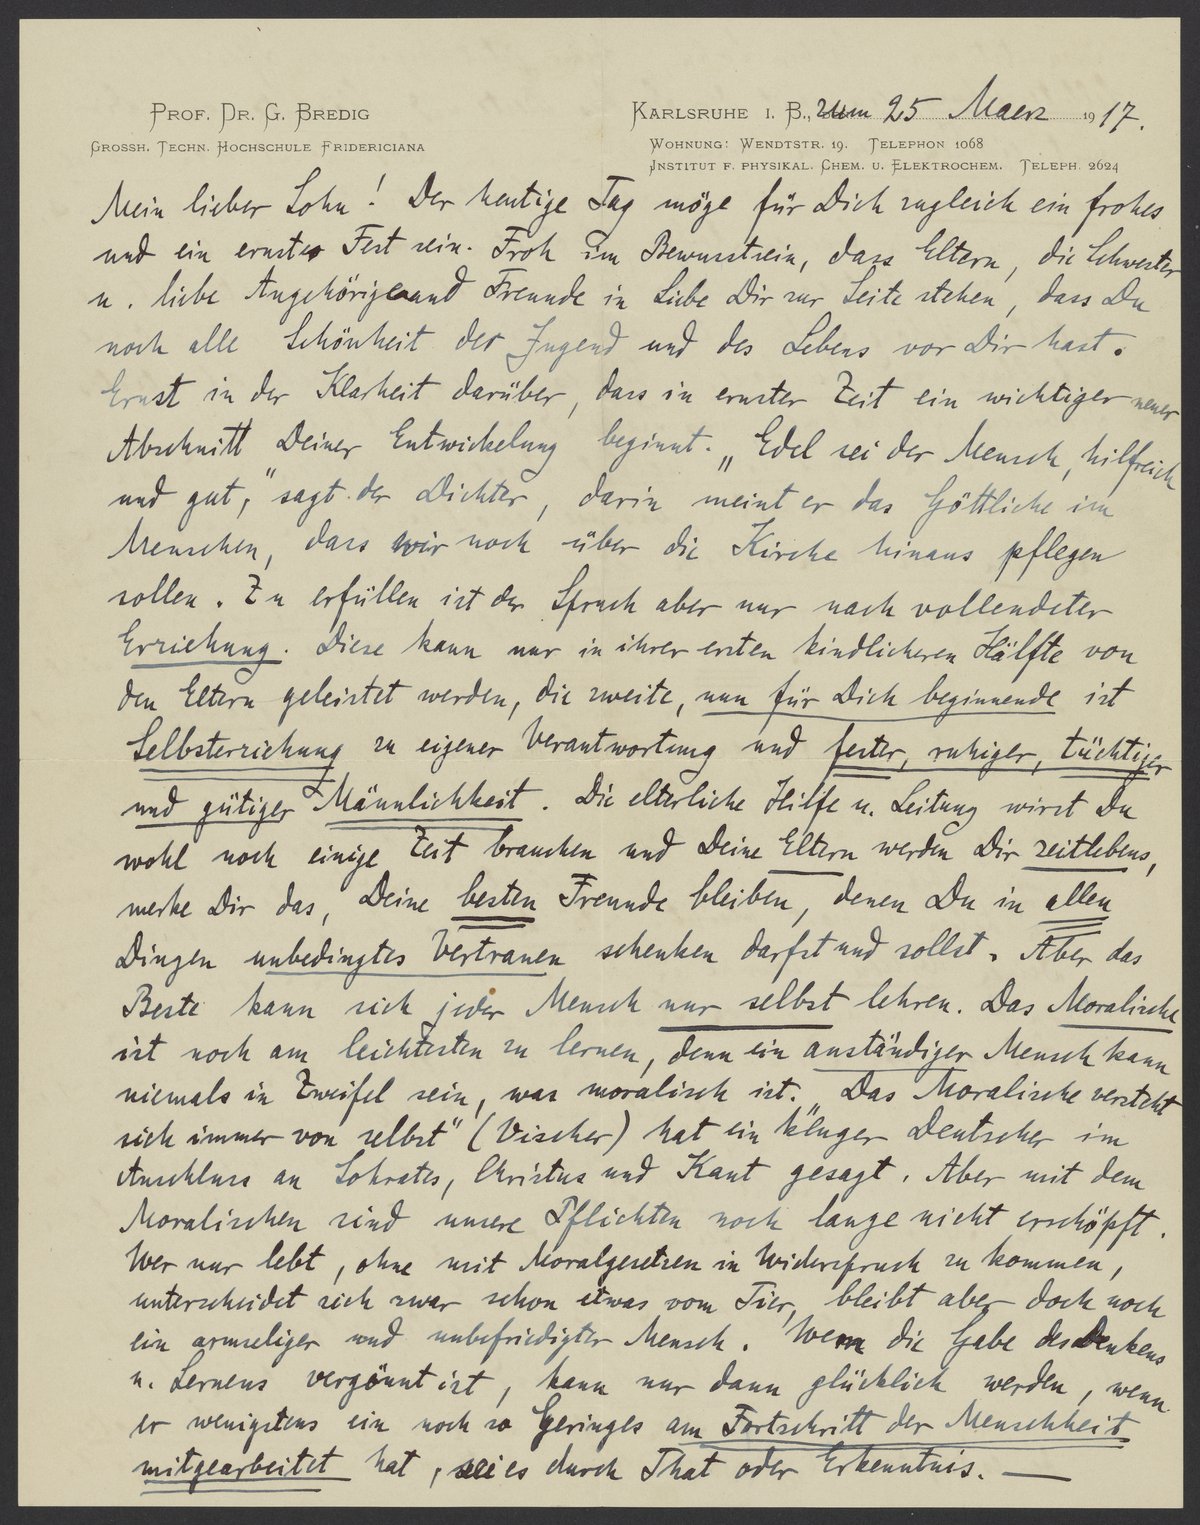 Prof. Dr. G. Bredig
Grossh. Techn. Hochschule Fridericiana
Karlsruhe i. B., zum 25 Maerz 1917.
Wohnung: Wendtstr. 19. Telephon 1068
Institut f. physikal. Chem. u. Elektrochem. Teleph. 2624
Mein lieber Sohn! Der heutige Tag möge für Dich zugleich ein frohes
und ein ernstes Fest sein. Froh im Bewusstsein, dass Eltern, die Schwester
u. liebe Angehörige und Freunde in Liebe Dir zur Seite stehen, dass Du
noch alle Schönheit der Jugend und des Lebens vor Dir hast.
Ernst in der Klarheit darüber, dass in ernster Zeit ein wichtiger neuer
Abschnitt Deiner Entwickelung beginnt. „Edel sei der Mensch, hilfreich
und gut,“ sagt der Dichter, darin meint er das Göttliche im
Menschen, dass wir noch über die Kirche hinaus pflegen
sollen. Zu erfüllen ist der Spruch aber nur nach vollendeter
Erziehung. Diese kann nur in ihrer ersten kindlicheren Hälfte von
den Eltern geleistet werden, die zweite, nun für Dich beginnende ist
Selbsterziehung zu eigener Verantwortung und fester, ruhiger, tüchtiger
und gütiger Männlichkeit. Die elterliche Hilfe u. Leitung wirst Du
wohl noch einige Zeit brauchen und Deine Eltern werden Dir zeitlebens,
merke Dir das, Deine besten Freunde bleiben, denen Du in allen
Dingen unbedingtes Vertrauen schenken darfst und sollst. Aber das
Beste kann sich jeder Mensch nur selbst lehren. Das Moralische
ist noch am leichtesten zu lernen, denn ein anständiger Mensch kann
niemals in Zweifel sein, was moralisch ist. „Das Moralische versteht
sich immer von selbst“ (Vischer) hat ein kluger Deutscher im
Anschluss an Sokrates, Christus und Kant gesagt. Aber mit dem
Moralischen sind unsere Pflichten noch lange nicht erschöpft.
Wer nur lebt, ohne mit Moralgesetzen in Widerspruch zu kommen,
unterscheidet sich zwar schon etwas vom Tier, bleibt aber doch noch
ein armseliger und unbefriedigter Mensch. Wem die Gabe des Denkens
u. Lernens vergönnt ist, kann nur dann glücklich werden, wenn
er wenigstens ein noch so Geringes am Fortschritt der Menschheit
mitgearbeitet hat, sei es durch That oder Erkenntnis. —